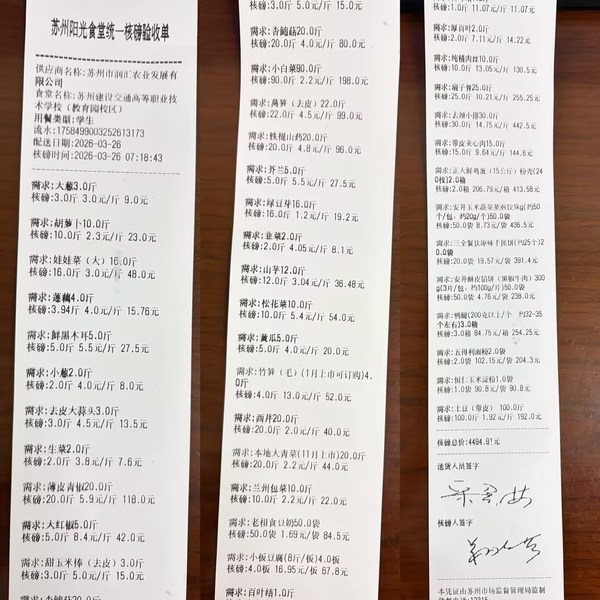 苏州阳光食堂统一核磅验收单
供应商名称:苏州市润汇农业发展有
限公司
食堂名称:苏州建设交通高等职业技
术学校（教育园校区）
用餐类型:学生
流水:1758499003252613173
配送日期:2026-03-26
核磅时间:2026-03-26 07:18:43
需求:大葱3.0斤
核磅:3.0斤 3.0元/斤 9.0元
需求:胡萝卜10.0斤
核磅:10.0斤 2.3元/斤 23.0元
需求:娃娃菜（大）16.0斤
核磅:16.0斤 3.0元/斤 48.0元
需求:莲藕4.0斤
核磅:3.94斤 4.0元/斤 15.76元
需求:鲜黑木耳5.0斤
核磅:5.0斤 5.5元/斤 27.5元
需求:小葱2.0斤
核磅:2.0斤 4.0元/斤 8.0元
需求:去皮大蒜头3.0斤
核磅:3.0斤 4.5元/斤 13.5元
需求:生菜2.0斤
核磅:2.0斤 3.8元/斤 7.6元
需求:薄皮青椒20.0斤
核磅:20.0斤 5.9元/斤 118.0元
需求:大红椒5.0斤
核磅:5.0斤 8.4元/斤 42.0元
需求:甜玉米棒（去皮）3.0斤
核磅:3.0斤 5.0元/斤 15.0元
需求:杏鲍菇20.0斤
核磅:3.0斤 5.0元/斤 15.0元
需求:杏鲍菇20.0斤
核磅:20.0斤 4.0元/斤 80.0元
需求:小白菜90.0斤
核磅:90.0斤 2.2元/斤 198.0元
需求:莴笋（去皮）22.0斤
核磅:22.0斤 4.5元/斤 99.0元
需求:铁棍山药20.0斤
核磅:20.0斤 4.8元/斤 96.0元
需求:芥兰5.0斤
核磅:5.0斤 5.5元/斤 27.5元
需求:绿豆芽16.0斤
核磅:16.0斤 1.2元/斤 19.2元
需求:韭菜2.0斤
核磅:2.0斤 4.05元/斤 8.1元
需求:山芋12.0斤
核磅:12.0斤 3.04元/斤 36.48元
需求:松花菜10.0斤
核磅:10.0斤 5.4元/斤 54.0元
需求:黄瓜5.0斤
核磅:5.0斤 4.0元/斤 20.0元
需求:竹笋（毛）(1月上市可订购)4.
0斤
核磅:4.0斤 13.0元/斤 52.0元
需求:西芹20.0斤
核磅:20.0斤 2.0元/斤 40.0元
需求:本地大青菜(11月上市)20.0斤
核磅:20.0斤 2.2元/斤 44.0元
需求:兰州包菜10.0斤
核磅:10.0斤 2.2元/斤 22.0元
需求:老相食豆奶50.0袋
核磅:50.0袋 1.69元/袋 84.5元
需求:小板豆腐(8斤/板)4.0板
核磅:4.0板 16.95元/板 67.8元
需求:百叶结1.0斤
核磅:1.0斤 11.07元/斤 11.07元
需求:厚百叶2.0斤
核磅:2.0斤 7.11元/斤 14.22元
需求:纯精肉丝10.0斤
核磅:10.0斤 13.05元/斤 130.5元
需求:扇子骨25.0斤
核磅:25.0斤 10.21元/斤 255.25元
需求:去颈小排30.0斤
核磅:30.0斤 14.75元/斤 442.5元
需求:带皮夹心肉15.0斤
核磅:15.0斤 9.64元/斤 144.6元
需求:正大鲜鸡蛋（15公斤）粉壳(24
0枚)2.0箱
核磅:2.0箱 206.79元/箱 413.58元
需求:安井玉米蔬菜蒸煎饺1kg(约50
个/包，约20g/个)50.0袋
核磅:50.0袋 8.73元/袋 436.5元
需求:三全餐饮原味手抓饼(约25个)2
0.0袋
核磅:20.0袋 19.57元/袋 391.4元
需求:安井酥皮馅饼（黑椒牛肉）300
g(3片/包，约100g/片)50.0袋
核磅:50.0袋 4.76元/袋 238.0元
需求:鸭腿(200克以上/个 约32-35
个左右)3.0箱
核磅:3.0箱 84.75元/箱 254.25元
需求:五得利面粉2.0袋
核磅:2.0袋 102.15元/袋 204.3元
需求:恒仁玉米淀粉1.0袋
核磅:1.0袋 90.8元/袋 90.8元
需求:土豆（带皮）100.0斤
核磅:100.0斤 1.92元/斤 192.0元
核磅总价:4494.91元
送货人员签字
核磅人签字
本凭证由苏州市场监督管理局监制